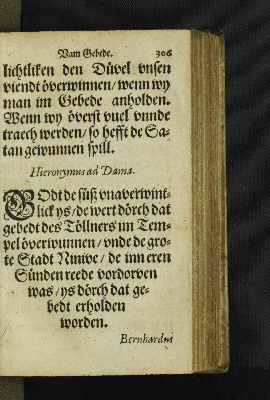 Vam Gebede. 306
lichtliken den Düvel vnsen
viendt överwinnen/ wenn wy
man im Gebede anholden.
Wenn wy överst vuel vnnde
traech werden/ so hefft de Sa-
tan gewunnen spill.
Hieronymus ad Dama.
GOdt de süß vnaverwint-
lick ys/ de wert dörch dat
gebedt des Töllners im Tem-
pel överwunnen/ vnde de gro-
te Stadt Ninive/ de inn eren
Sünden reede vordorven
was/ ys dörch dat ge-
bedt erholden
worden.
Bernhardus